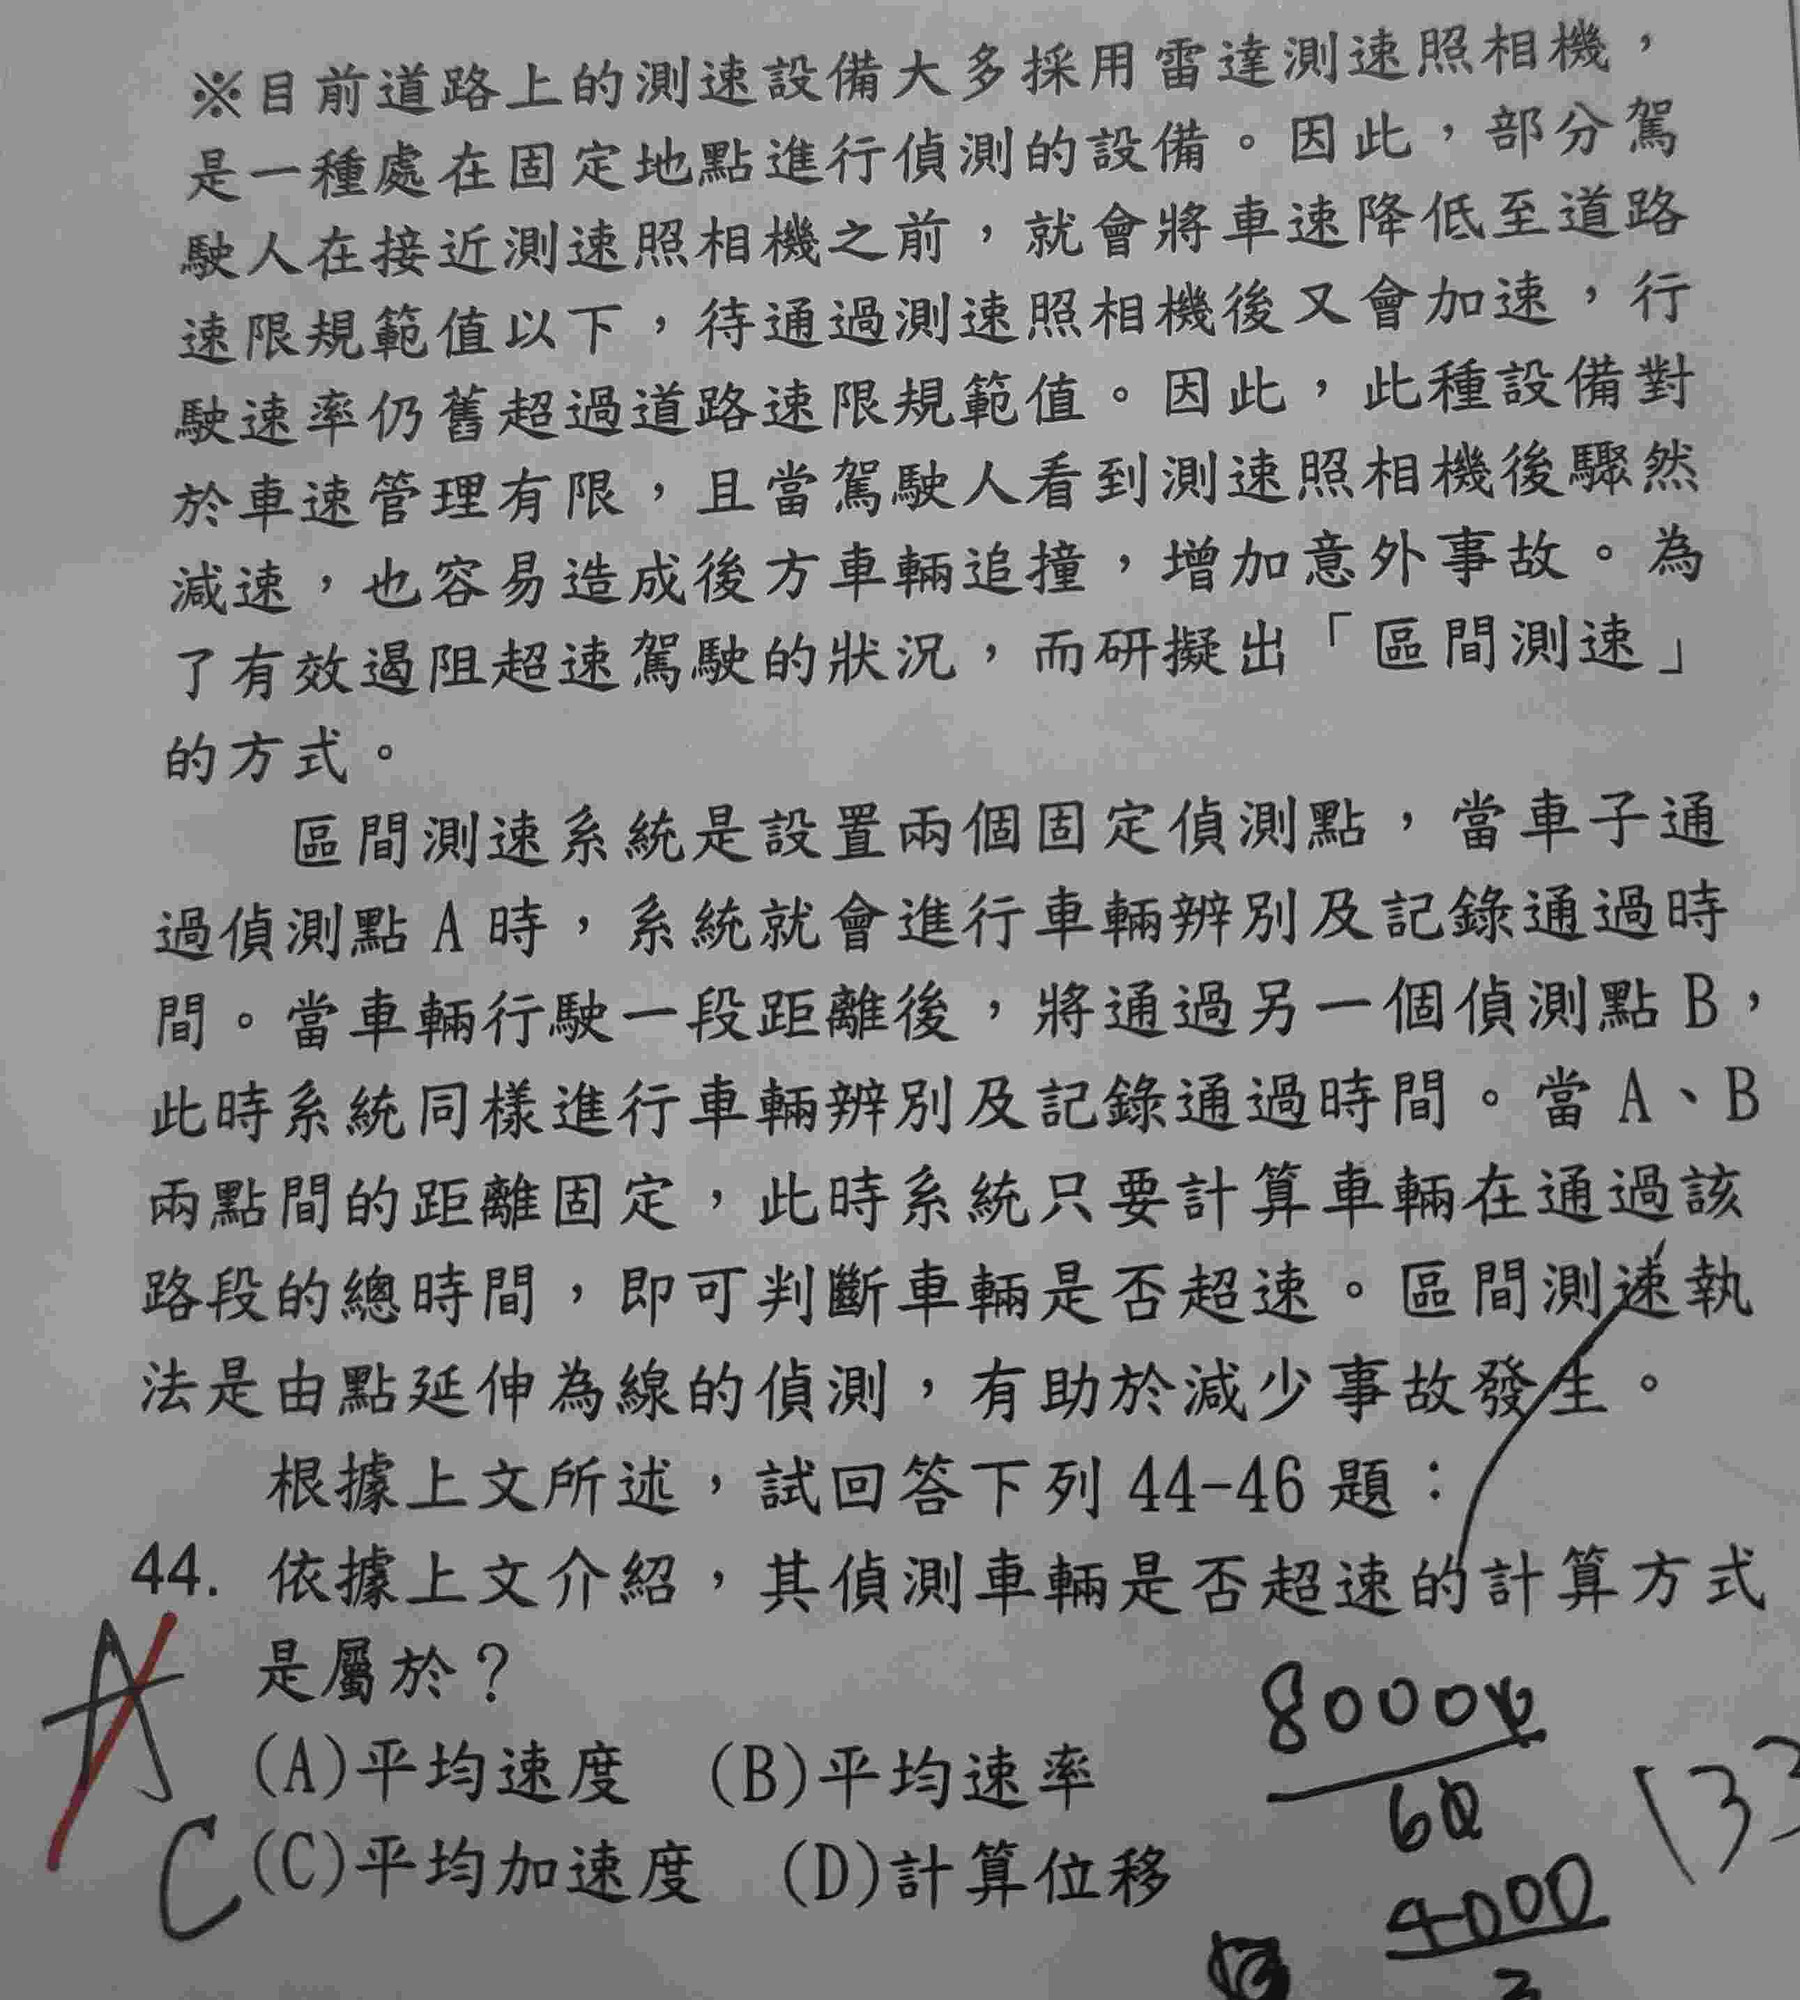 ※目前道路上的測速設備大多採用雷達測速照相機，
是一種處在固定地點進行偵測的設備。因此，部分駕
駛人在接近測速照相機之前，就會將車速降低至道路
速限規範值以下，待通過測速照相機後又會加速，行
駛速率仍舊超過道路速限規範值。因此，此種設備對
於車速管理有限，且當駕駛人看到測速照相機後驟然
減速，也容易造成後方車輛追撞，增加意外事故。為
了有效遏阻超速駕駛的狀況，而研擬出「區間測速」
的方式。
區間測速系統是設置兩個固定偵測點，當車子通
過偵測點 A 時，系統就會進行車輛辨別及記錄通過時
間。當車輛行駛一段距離後，將通過另一個偵測點 B，
此時系統同樣進行車輛辨別及記錄通過時間。當 A、B
兩點間的距離固定，此時系統只要計算車輛在通過該
路段的總時間，即可判斷車輛是否超速。區間測速執
法是由點延伸為線的偵測，有助於減少事故發生。
根據上文所述，試回答下列 44-46 題：
44. 依據上文介紹，其偵測車輛是否超速的計算方式
是屬於？
A
(A)平均速度 (B)平均速率
C
(C)平均加速度 (D)計算位移
80000
60
133
4000
3